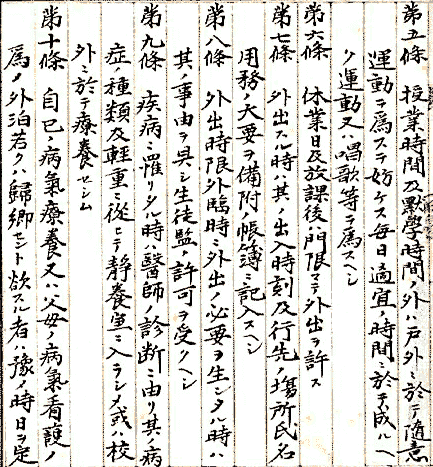 第五條 授業時間及黙學時間ノ外ハ戸外ニ於テ隨意
運動ヲ爲スヲ妨ケス毎日適宜ノ時間ニ於テ成ルヘ
ク運動又ハ唱歌等ヲ爲スヘシ
第六條 休業日及放課後ハ門限マテ外出ヲ許ス
第七條 外出スル時ハ其ノ出入時刻及行先ノ塲所氏名
用務ノ大要ヲ備附ノ帳簿ニ記入スヘシ
第八條 外出時限外臨時ニ外出ノ必要ヲ生シタル時ハ
其ノ事由ヲ具シ生徒監ノ許可ヲ受クヘシ
第九條 疾病ニ罹リタル時ハ醫師ノ診断ニ由リ其ノ病
症ノ種類及輕重ニ從ヒテ靜養室ニ入ラシメ或ハ校
外ニ於テ療養セシム
第十條 自己ノ病氣療養又ハ父母ノ病氣看護ノ
爲メ外泊若クハ歸郷セント欲スル者ハ豫メ時日ヲ定